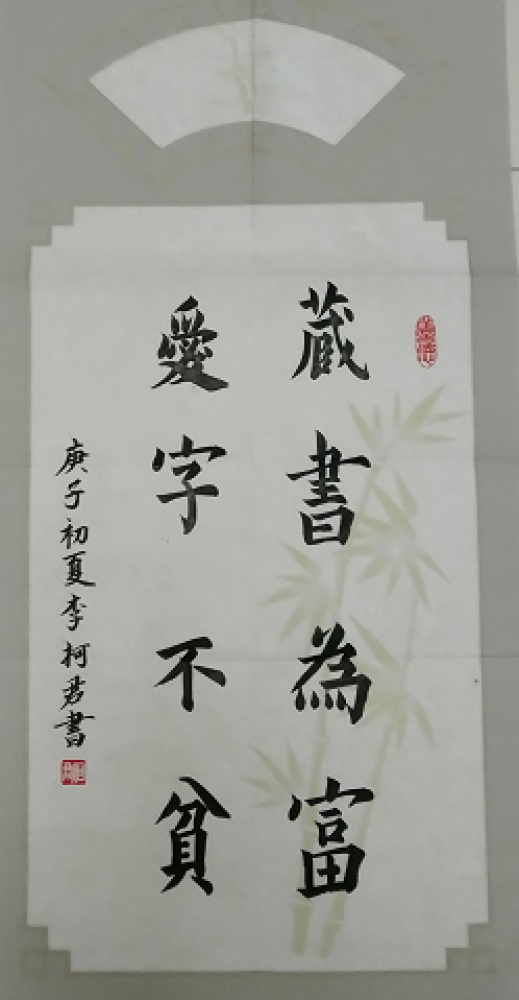 藏書為富
愛字不貧
庚子初夏李柯君書